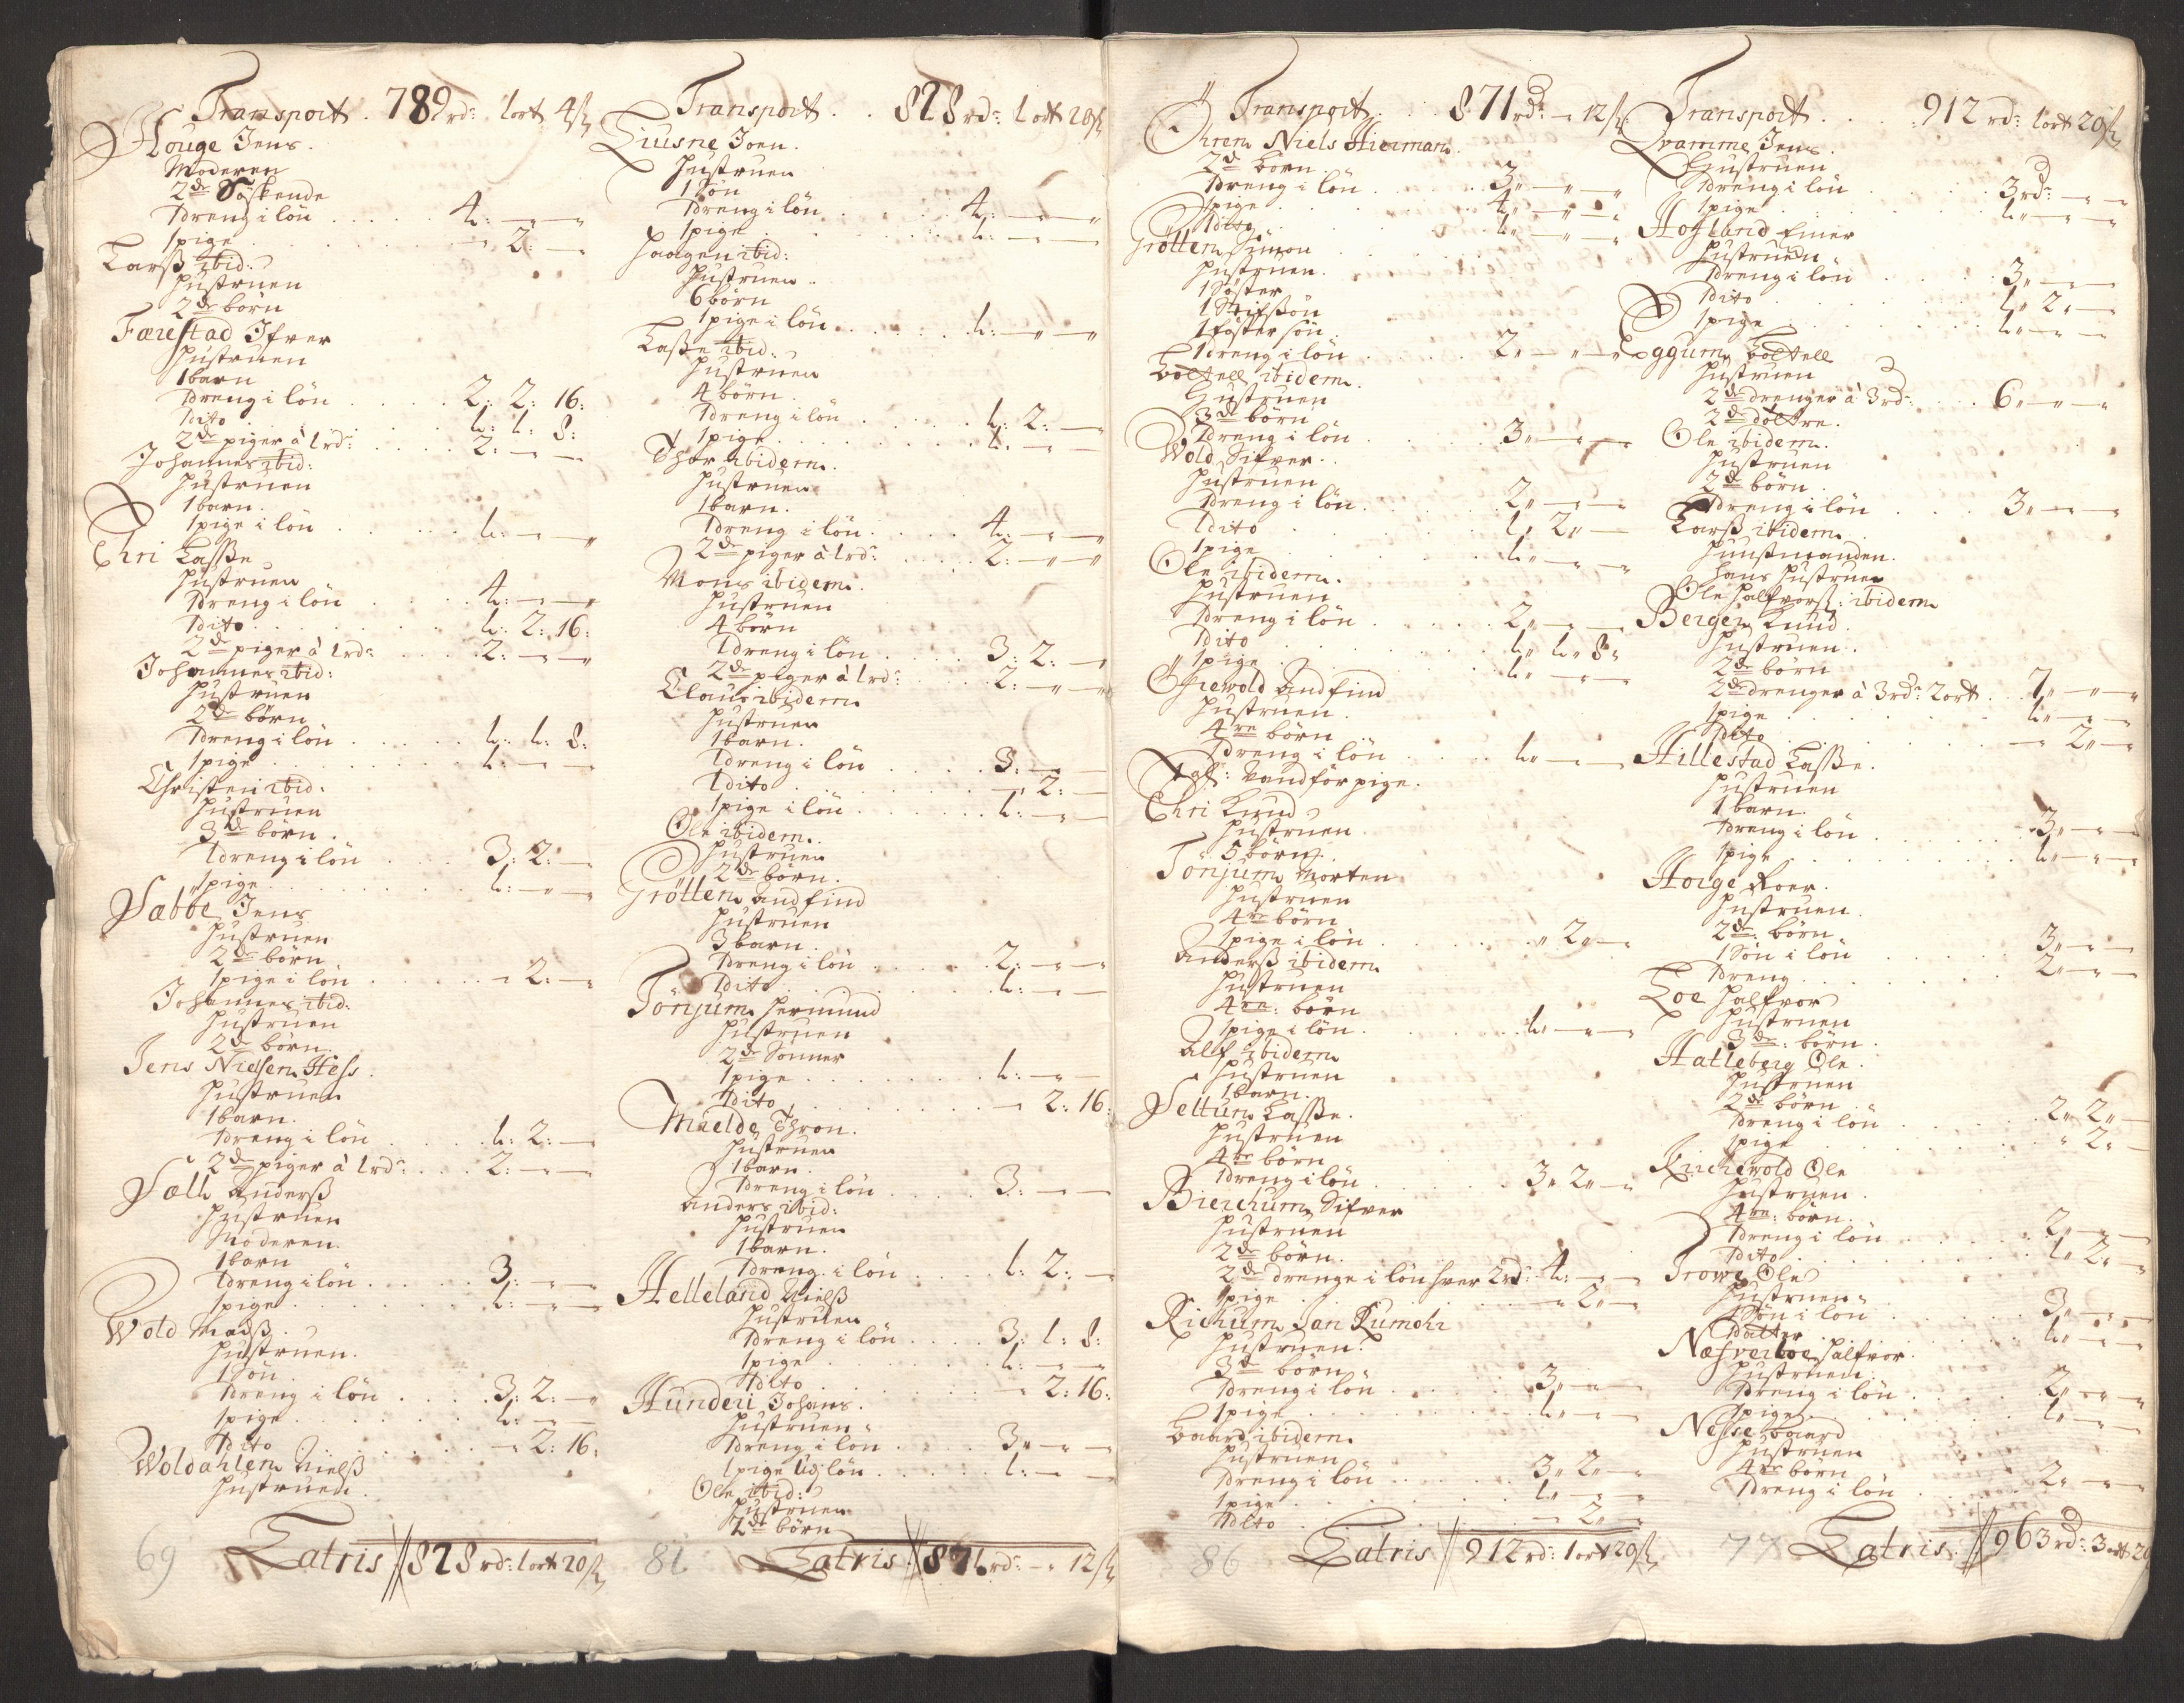 Transport . 789 rd: 1 ort 4 ß
Houge Jens.
Moderen
2de Söskende
1dreng i lön . . . . . 4: — —
1pige . . . . . . — 2: —
Larß ibid:
Hustruen
2de börn
Færestad Ifver
Hustruen
1 barn
1dreng i lön . . . . 2: 2: 16:
1dito . . . . . . . 1: 1: 8:
2de piger à 1 rd: . . . . 2: — —
Johannes ibid:
Hustruen
1 barn.
1pige i lön . . . . . 1: — —
Ehri Lasse
Hustruen
1dreng i lön . . . . . 4: — —
1dito . . . . . . . 1: 2: 16:
2de piger à 1 rd: . . . . 2: — —
Johannes ibid:
Hustruen
2de börn
1dreng i lön . . . . . 1: 1: 8:
1pige . . . . . . . 1: — —
Christen ibid:
Hustruen
3de börn.
1dreng i lön . . . . 3: 2: —
1pige . . . . . . . 1: — —
Sabbe Jens
Hustruen
2de börn
1pige i lön . . . . . — 2: —
Johannes ibid:
Hustruen
2de börn.
Jens Nielsen Hess.
Hustruen
1 barn.
1dreng i lön . . . . . 1: 2: —
2de piger à 1 rd: . . . . 2: — —
Sælh Anderß
Hustruen
Moderen.
1 barn
1dreng i lön . . . . . 3: — —
1pige . . . . . . . 1: — —
Wold Madß.
Hustruen.
1 Sön.
1dreng i lön . . . . 3: 2: —
1pige . . . . . . . 1: — —
1dito . . . . . . — 2: 16:
Woldahlen Nielß
Hustruen.
69 Latris 828 rd: 1 ort 20 ß
Transport . . 828 rd: 1 ort 20 ß
Liusne Joen.
Hustruen
1 Sön
1dreng i lön . . . . . 4: — —
1pige . . . . . . . 1: — —
Haagen ibid:
Hustruen.
6 börn
1pige i lön . . . . . 1: — —
Lasse ibid:
Hustruen
4 börn.
1dreng i lön . . . . . 1: 2: —
1pige . . . . . . . 1: — —
Thor ibidem.
Hustruen
1 barn.
1dreng i lön . . . . . 4: — —
2de piger à 1 rd: . . . . 2: — —
Mons ibidem.
Hustruen
4 börn
1dreng i lön . . . . 3: 2: —
2de piger à 1 rd: . . . . 2: — —
Claus ibidem
Hustruen
1 barn.
1dreng i lön . . . . . 3: — —
1dito . . . . . . — 2: —
1pige i lön . . . . . 1: — —
Ole ibidem.
Hustruen
2de börn.
Grötten Andfind
Hustruen
3 barn.
1dreng i lön . . . . . 2: — —
1dito . . . . . . . 1: — —
Tönjum Hermund
Hustruen
2de Sönner
1pige . . . . . . . 1: — —
1dito . . . . . . — 2: 16:
Mælde Thron.
Hustruen
1 barn.
1dreng i lön . . . . . 3: — —
Anders ibid:
Hustruen
1 barn.
1dreng i lön . . . . . 1: 2: —
Helleland Nielß
Hustruen
1dreng i lön . . . . 3: 1: 8:
1pige . . . . . . . 1: — —
1dito . . . . . . — 2: 16:
Hunderi Johans.
Hustruen
1dreng i lön . . . . . 3: — —
1pige i lön . . . . . 1: — —
Ole ibid:
Hustruen
2de börn
81 Latris 871 rd: — 12 ß
Transport . . 871 rd: — 12 ß
Öhren Niels Hierman.
2de börn
1dreng i lön . . . . . 3 — —
1pige . . . . . . . 4 — —
1dito . . . . . . . 1 — —
Grötten Simon
Hustruen.
1 Söster
1 Stifsön
1 foster sön
1dreng i lön . . . . . 2 — —
Boltell ibidem.
Hustruen
3de börn
1dreng i lön . . . . . 3 — —
Wold Sifver.
Hustruen
1dreng i lön . . . . . 2 — —
1dito . . . . . . . 1 2 —
1pige . . . . . . . 1 — —
Ole ibidem.
Hustruen
1dreng i lön . . . . . 2 — —
1dito . . . . . . . 1 1 8
1pige . . . . . . . 1 — —
Öhrewold Andfind
Hustruen.
4re börn
1dreng i lön . . . . . 1 — —
Ehri Knud
Hustruen.
5 börn
Tönjum Morten
Hustruen
4re börn
1pige i lön . . . . . — 2 —
Anderß ibidem
Hustruen
4re börn
1pige i lön . . . . . 1 — —
Alf ibidem
Hustruen
1 barn.
Seltun Lasse.
Hustruen
4re börn
1dreng i lön . . . . 3 2 —
Bierchum Sifver
Hustruen
2de börn.
2de drenge i lön hver 2 rd: 4 — —
1pige . . . . . . — 2 —
Richum Jan Rumohr
Hustruen.
3de börn.
1dreng i lön . . . . . 3 — —
1pige . . . . . . . 1 — —
Baard ibidem.
Hustruen
1dreng i lön . . . . 3 2 —
1pige . . . . . . . 1 — —
1dito . . . . . . — 2 —
86 Latris 912 rd: 1 ort 20 ß
Transport . . . . 912 rd: 1 ort 20 ß
Qvamme Jens.
Hustruen
1dreng i lön . . . . . 3 rd: — —
1pige . . . . . . . 1 — —
Hofland Einer
Hustruen
1dreng i lön . . . . . 3 — —
1dito . . . . . . . 1 2 —
1pige . . . . . . . 1 — —
Eggum Boltell
Hustruen
2de drenger à 3 rd: . . . 6 — —
2de döttre.
Ole ibidem.
Hustruen
2de börn.
1dreng i lön . . . . . 3 — —
Larß ibidem.
Huustmanden.
Hans Hustruen
Ole Halfvorß: ibidem
Bergen Knud.
Hustruen.
2de börn
2de drenger à 3 rd: 2 ort . . 7 — —
1pige . . . . . . . 1 — —
1dito . . . . . . — 2 —
Hillestad Lasse.
Hustruen
1 barn.
1dreng i lön . . . . . 3 — —
1pige . . . . . . . 1 — —
Hoige Roer.
Hustruen.
2de börn.
1 Sön i lön . . . . . 3 — —
1dreng . . . . . . 2 — —
Loe Halfvor
Hustruen
3de börn.
Hatleberg Ole.
Hustruen
2de börn
1dreng i lön . . . . 2 2 —
1pige . . . . . . — 2 —
Kirchevold Ole
Hustruen.
4re börn.
1dreng i lön . . . . . 2 — —
1dito . . . . . . . 1 2 —
Trowe Ole
Hustruen
1 Sön i lön . . . . . 3 — —
1 datter . . . . . . 1 — —
Næsverboe Halfvor.
Hustruen.
1dreng i lön . . . . . 2 — —
1pige . . . . . . . 1 — —
Nesse Baard
Hustruen
4re börn
1dreng i lön . . . . . 2 — —
77 Latris 963 rd: 3 ort 20